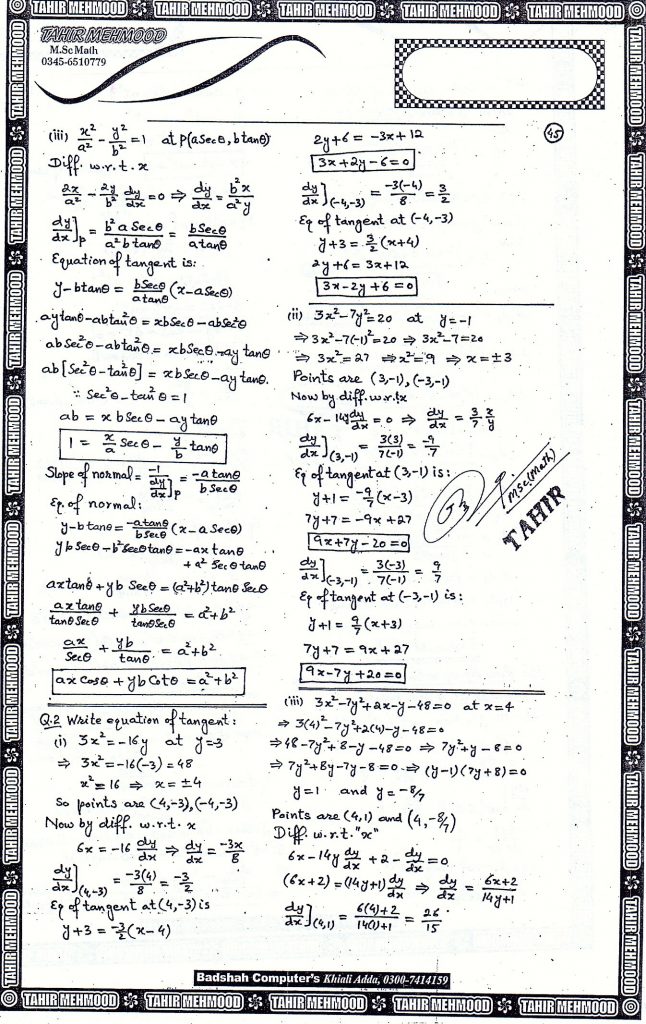 TAHIR MEHMOOD TAHIR MEHMOOD TAHIR MEHMOOD TAHIR MEHMOOD TAHIR MEHMOOD
TAHIR MEHMOOD
M.Sc Math
0345-6510779
45
(iii) x²/a² - y²/b² = 1 at P(a Secθ, b tanθ)
Diff. w.r.t. x
2x/a² - 2y/b² dy/dx = 0 ⇒ dy/dx = b²x/a²y
dy/dx]p = b² a Secθ/a² b tanθ = b Secθ/a tanθ
Equation of tangent is:
y - b tanθ = b Secθ/a tanθ (x - a Secθ)
ay tanθ - ab tan²θ = x b Secθ - ab Sec²θ
ab Sec²θ - ab tan²θ = x b Secθ - ay tanθ
ab [Sec²θ - tan²θ] = x b Secθ - ay tanθ.
∵ Sec²θ - tan²θ = 1
ab = x b Secθ - ay tanθ
1 = x/a Secθ - y/b tanθ
Slope of normal = -1/dy/dx]p = -a tanθ/b Secθ
Eq. of normal:
y - b tanθ = -a tanθ/b Secθ (x - a Secθ)
y b Secθ - b² Secθ tanθ = -ax tanθ
+ a² Secθ tanθ
ax tanθ + y b Secθ = (a²+b²) tanθ Secθ
ax tanθ/tanθ Secθ + y b Secθ/tanθ Secθ = a²+b²
ax/Secθ + yb/tanθ = a²+b²
ax Cosθ + y b Cotθ = a²+b²
Q.2 Write equation of tangent:
(i) 3x² = -16y at y=-3
⇒ 3x² = -16(-3) = 48
x² = 16 ⇒ x = ±4
So points are (4,-3), (-4,-3)
Now by diff. w.r.t. x
6x = -16 dy/dx ⇒ dy/dx = -3x/8
dy/dx](4,-3) = -3(4)/8 = -3/2
Eq of tangent at (4,-3) is
y+3 = -3/2 (x-4)
2y+6 = -3x+12
3x+2y-6=0
dy/dx](-4,-3) = -3(-4)/8 = 3/2
Eq of tangent at (-4,-3)
y+3 = 3/2 (x+4)
2y+6 = 3x+12
3x-2y+6=0
(ii) 3x²-7y²=20 at y=-1
⇒ 3x²-7(-1)²=20 ⇒ 3x²-7=20
⇒ 3x²=27 ⇒ x²=9 ⇒ x=±3
Points are (3,-1), (-3,-1)
Now by diff. w.r.t x
6x-14y dy/dx = 0 ⇒ dy/dx = 3/7 x/y
dy/dx](3,-1) = 3(3)/7(-1) = -9/7
Eq of tangent at (3,-1) is:
y+1 = -9/7 (x-3)
7y+7 = -9x+27
9x+7y-20=0
M.Sc(Math)
TAHIR
dy/dx](-3,-1) = 3(-3)/7(-1) = 9/7
Eq of tangent at (-3,-1) is:
y+1 = 9/7 (x+3)
7y+7 = 9x+27
9x-7y+20=0
(iii) 3x²-7y²+2x-y-48=0 at x=4
⇒ 3(4)²-7y²+2(4)-y-48=0
⇒ 48-7y²+8-y-48=0 ⇒ 7y²+y-8=0
⇒ 7y²+8y-7y-8=0 ⇒ (y-1)(7y+8)=0
y=1 and y=-8/7
Points are (4,1) and (4,-8/7)
Diff. w.r.t. "x"
6x-14y dy/dx + 2 - dy/dx = 0
(6x+2) = (14y+1) dy/dx ⇒ dy/dx = 6x+2/14y+1
dy/dx](4,1) = 6(4)+2/14(1)+1 = 26/15
Badshah Computer's Khiali Adda, 0300-7414159
TAHIR MEHMOOD TAHIR MEHMOOD TAHIR MEHMOOD TAHIR MEHMOOD TAHIR MEHMOOD